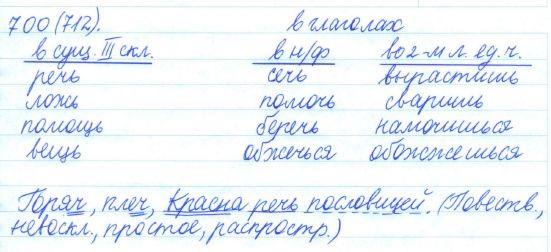 700(712). в глаголах
в сущ. III скл. в н/ф во 2-м л. ед. ч.
речь сечь вырастишь
ложь помочь сваришь
помощь беречь намочишься
вещь обжечься обожжешься
Горяч, плеч, Красна речь пословицей. (Повеств.,
невоскл., простое, распростр.)